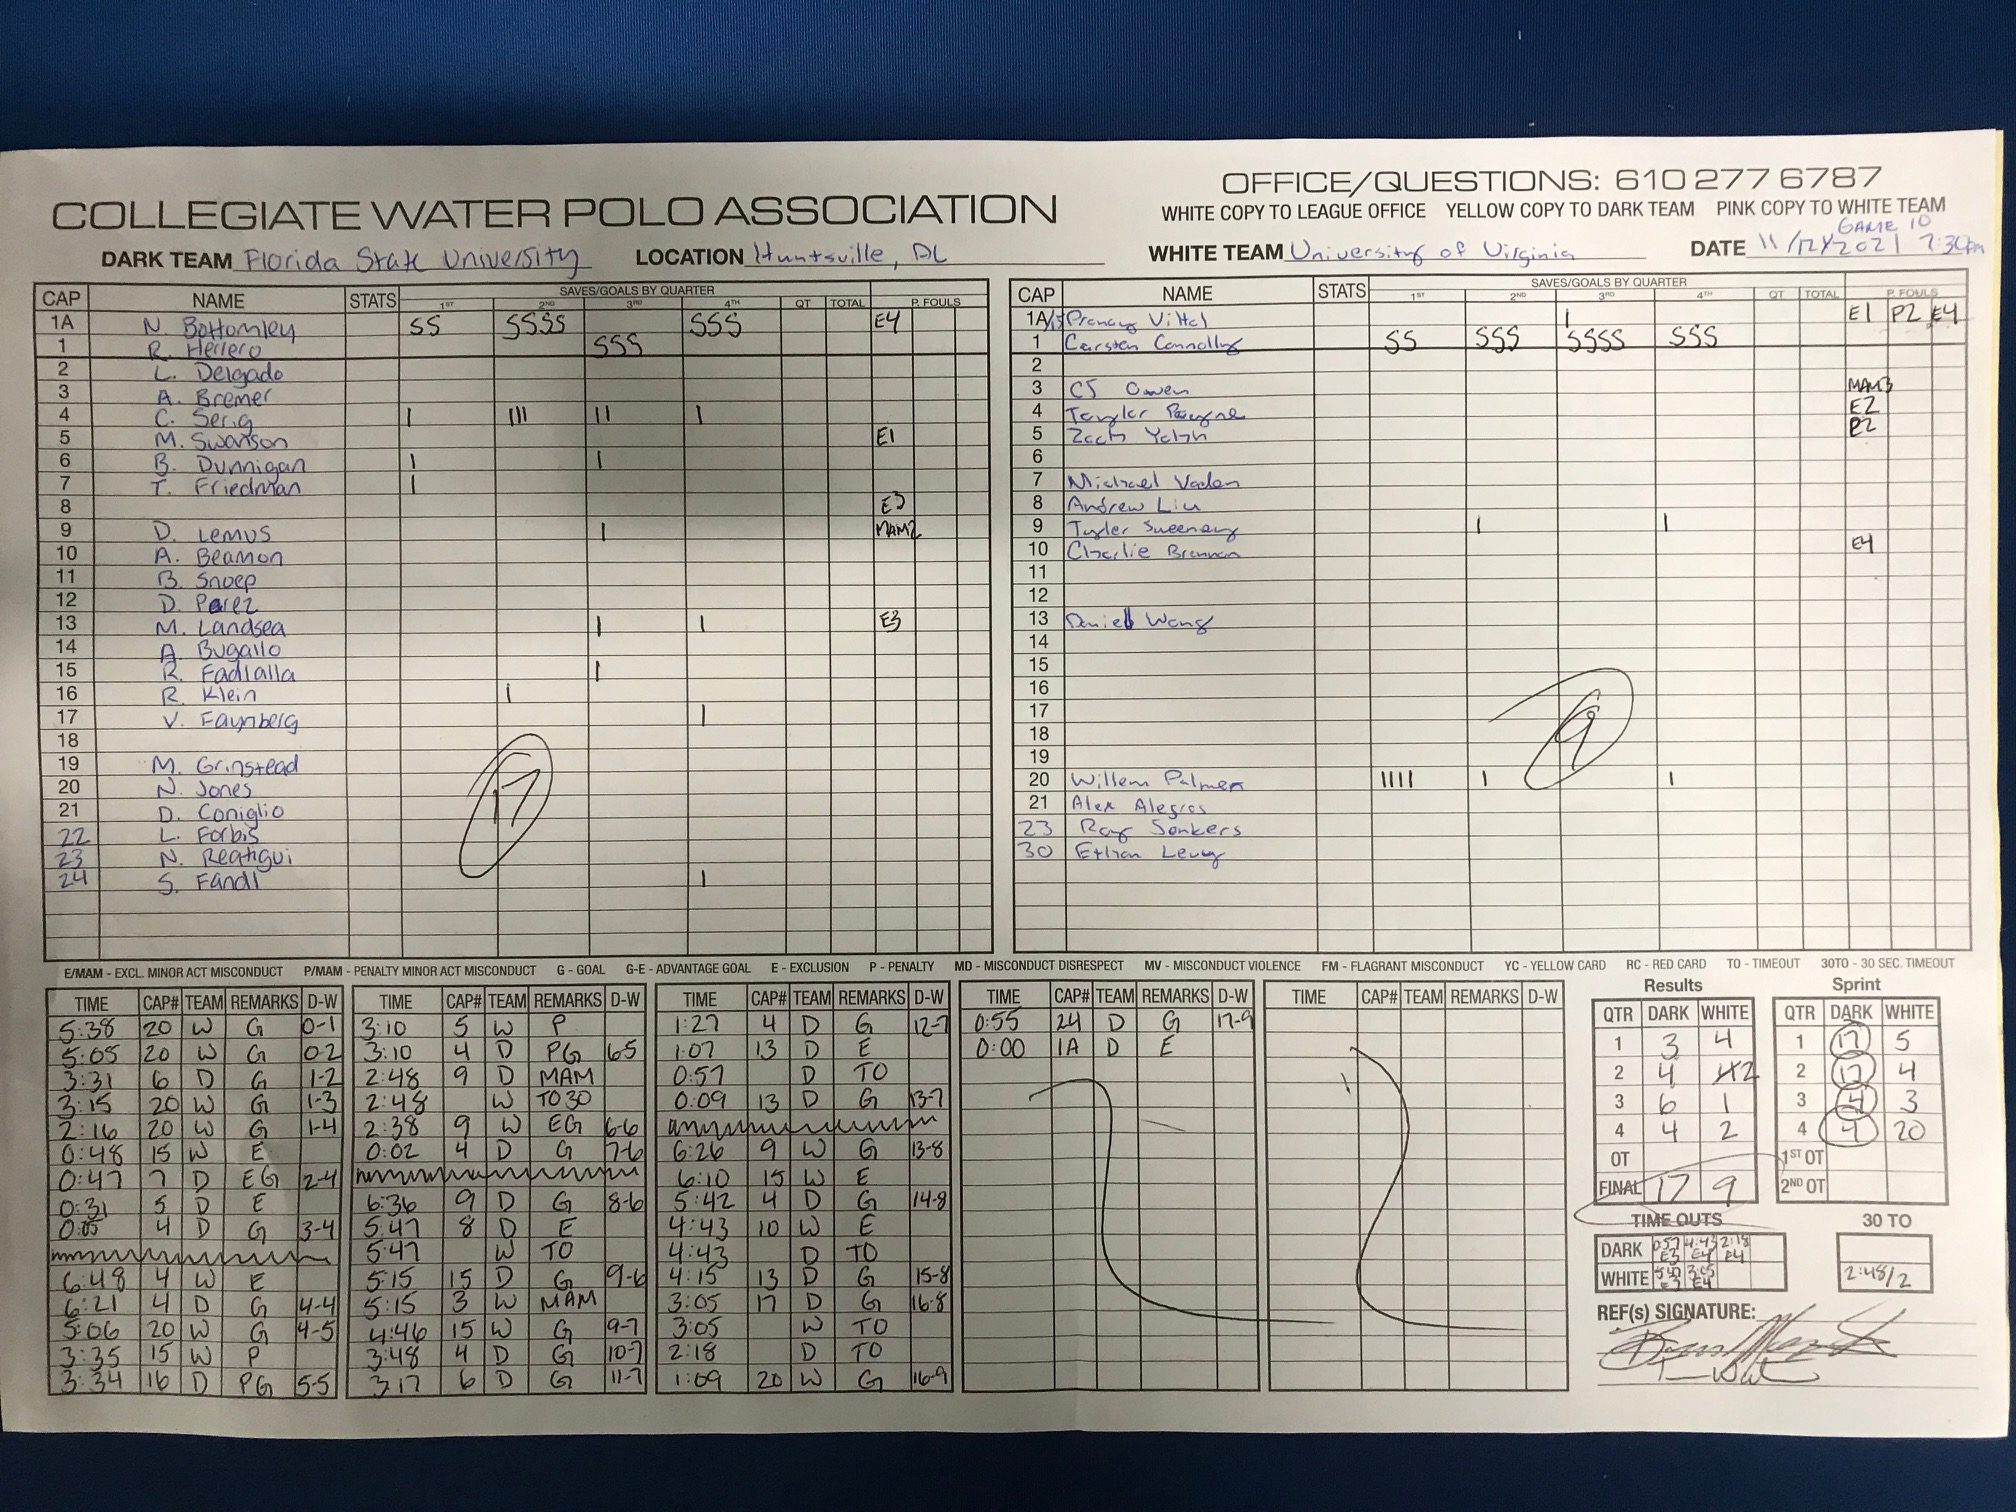 OFFICE/QUESTIONS: 610 277 6787
COLLEGIATE WATER POLO ASSOCIATION
WHITE COPY TO LEAGUE OFFICE YELLOW COPY TO DARK TEAM PINK COPY TO WHITE TEAM
GAME 10
DARK TEAM Florida State University LOCATION Huntsville, AL WHITE TEAM University of Virginia DATE 11/12/2021 7:30pm
CAP NAME STATS SAVES/GOALS BY QUARTER
1ST 2ND 3RD 4TH OT TOTAL P. FOULS
1A N. Bottomley SS SSSS SSS E4
1 R. Herrero SSS
2 L. Delgado
3 A. Bremer
4 C. Serig I III II I
5 M. Swanson E1
6 B. Dunnigan I I
7 T. Friedman I
8 E3
9 D. Lemus I MAM2
10 A. Beamon
11 B. Snoep
12 D. Perez
13 M. Landsea I I E3
14 A. Bugallo
15 R. Fadlalla I
16 R. Klein I
17 V. Faynberg I
18
19 M. Grinstead
20 N. Jones
21 D. Coniglio
22 L. Forbis
23 N. Reatigui
24 S. Fandl I
17
CAP NAME STATS SAVES/GOALS BY QUARTER
1ST 2ND 3RD 4TH OT TOTAL P. FOULS
1A/15 Pranav Vittal I E1 P2 E4
1 Carsten Connolly SS SSS SSSS SSS
2
3 CJ Owen MAM3
4 Taylor Payne E2
5 Zach Yahn P2
6
7 Michael Vaden
8 Andrew Liu
9 Tyler Sweeney I I
10 Charlie Brennan E4
11
12
13 Daniel Wang
14
15
16
17
18
19
20 Willem Palmer IIII I I
21 Alex Alegres
23 Ray Sonkers
30 Ethan Levy
9
E/MAM - EXCL. MINOR ACT MISCONDUCT P/MAM - PENALTY MINOR ACT MISCONDUCT G - GOAL G-E - ADVANTAGE GOAL E - EXCLUSION P - PENALTY MD - MISCONDUCT DISRESPECT MV - MISCONDUCT VIOLENCE FM - FLAGRANT MISCONDUCT YC - YELLOW CARD RC - RED CARD TO - TIMEOUT 30TO - 30 SEC. TIMEOUT
TIME CAP# TEAM REMARKS D-W
5:38 20 W G 0-1
5:05 20 W G 0-2
3:31 6 D G 1-2
3:15 20 W G 1-3
2:16 20 W G 1-4
0:48 15 W E
0:47 7 D EG 2-4
0:31 5 D E
0:05 4 D G 3-4
6:48 4 W E
6:21 4 D G 4-4
5:06 20 W G 4-5
3:35 15 W P
3:34 16 D PG 5-5
TIME CAP# TEAM REMARKS D-W
3:10 5 W P
3:10 4 D PG 6-5
2:48 9 D MAM
2:48 W TO30
2:38 9 W EG 6-6
0:02 4 D G 7-6
6:36 9 D G 8-6
5:47 8 D E
5:47 W TO
5:15 15 D G 9-6
5:15 3 W MAM
4:46 15 W G 9-7
3:48 4 D G 10-7
3:17 6 D G 11-7
TIME CAP# TEAM REMARKS D-W
1:27 4 D G 12-7
1:07 13 D E
0:57 D TO
0:09 13 D G 13-7
6:26 9 W G 13-8
6:10 15 W E
5:42 4 D G 14-8
4:43 10 W E
4:43 D TO
4:15 13 D G 15-8
3:05 17 D G 16-8
3:05 W TO
2:18 D TO
1:09 20 W G 16-9
TIME CAP# TEAM REMARKS D-W
0:55 24 D G 17-9
0:00 1A D E
TIME CAP# TEAM REMARKS D-W
Results
QTR DARK WHITE
1 3 4
2 4 2
3 6 1
4 4 2
OT
FINAL 17 9
Sprint
QTR DARK WHITE
1 17 5
2 17 4
3 4 3
4 4 20
1ST OT
2ND OT
TIME OUTS
DARK 0:57 E3 4:43 E4 2:18 E4
WHITE 5:47 E3 3:05 E4
30 TO
2:48/2
REF(s) SIGNATURE: